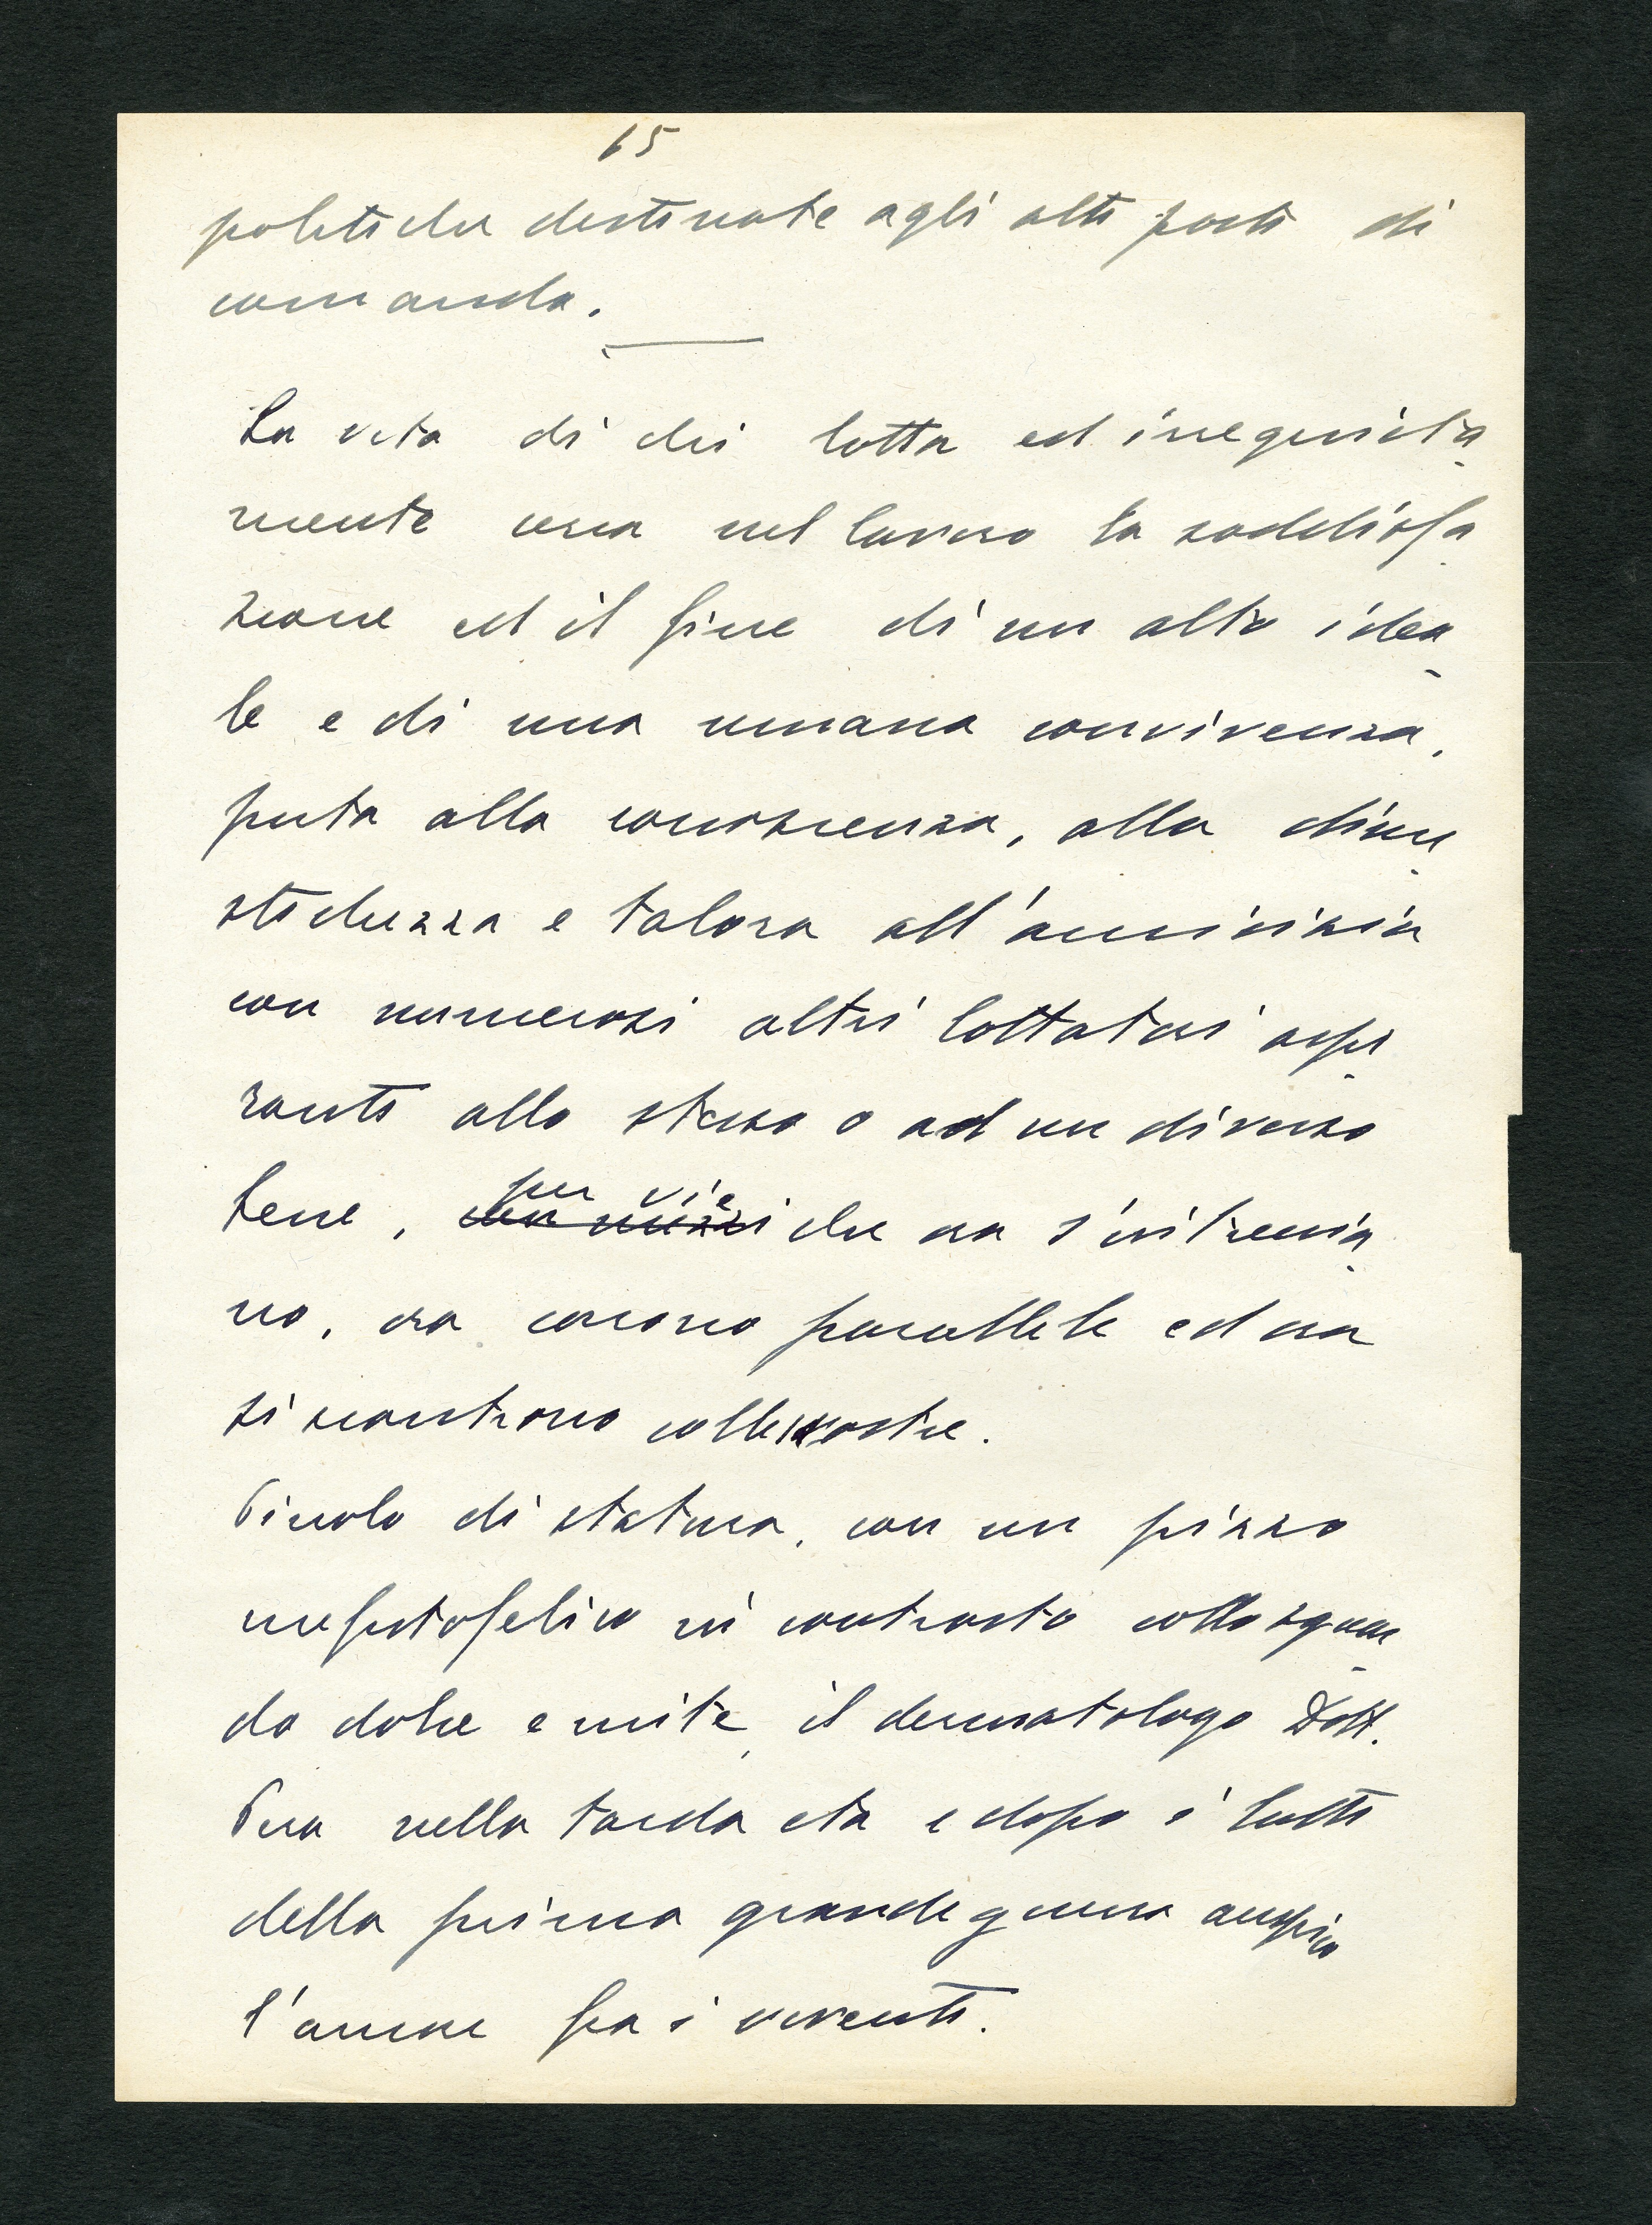 65
politiche destinate agli alti posti di
comando.
La vita di chi lotta ed irrequieta
mente cerca nel lavoro la soddisfa
zione ed il fine di un alto idea
le e di una umana convivenza,
porta alla conoscenza, alla dime
stichezza e talora all'amicizia
con numerosi altri lottatori aspi
ranti allo stesso o ad un diverso
bene, per vie che ora s'intrecia
no, ora corrono parallele ed ora
si scontrano colle nostre.
Piccolo di statura, con un pizzo
mefistofelico in contrasto collo sguar
do dolce e mite, il dermatologo Dott.
Pera nella tarda età e dopo i lutti
della prima grande guerra auspica
l'amore fra i viventi.